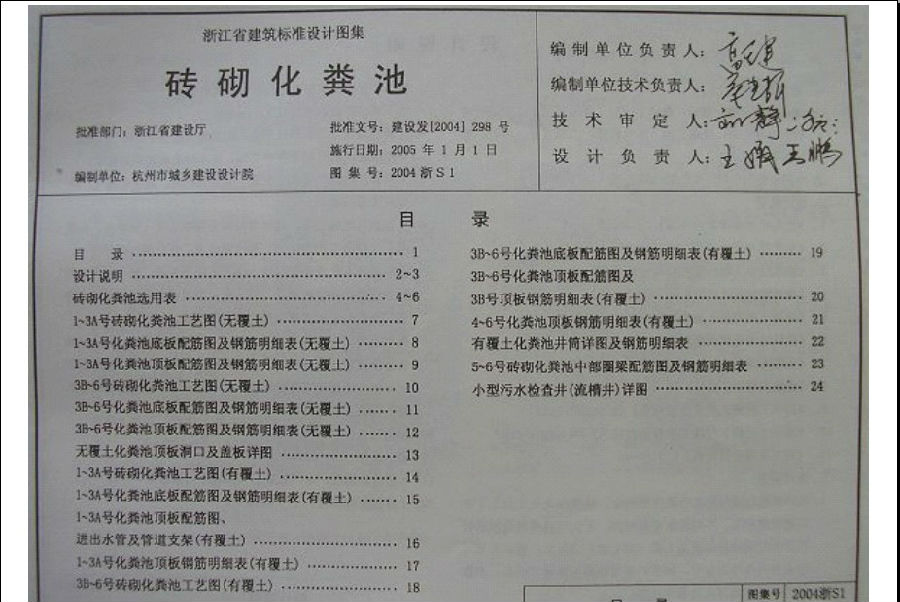 浙江省建筑标准设计图集
砖砌化粪池
批准部门：浙江省建设厅
批准文号：建设发[2004] 298 号
施行日期：2005 年 1 月 1 日
编制单位：杭州市城乡建设设计院
图 集 号：2004 浙 S 1
编制单位负责人：
编制单位技术负责人：
技 术 审 定 人：
设 计 负 责 人：
目 录
目 录 …… 1
设计说明 …… 2~3
砖砌化粪池选用表 …… 4~6
1~3A号砖砌化粪池工艺图(无覆土) …… 7
1~3A号化粪池底板配筋图及钢筋明细表(无覆土) …… 8
1~3A号化粪池顶板配筋图及钢筋明细表(无覆土) …… 9
3B~6号砖砌化粪池工艺图(无覆土) …… 10
3B~6号化粪池底板配筋图及钢筋明细表(无覆土) …… 11
3B~6号化粪池顶板配筋图及钢筋明细表(无覆土) …… 12
无覆土化粪池顶板洞口及盖板详图 …… 13
1~3A号砖砌化粪池工艺图(有覆土) …… 14
1~3A号化粪池底板配筋图及钢筋明细表(有覆土) …… 15
1~3A号化粪池顶板配筋图、
进出水管及管道支架(有覆土) …… 16
1~3A号化粪池顶板钢筋明细表(有覆土) …… 17
3B~6号砖砌化粪池工艺图(有覆土) …… 18
3B~6号化粪池底板配筋图及钢筋明细表(有覆土) …… 19
3B~6号化粪池顶板配筋图及
3B号顶板钢筋明细表(有覆土) …… 20
4~6号化粪池顶板钢筋明细表(有覆土) …… 21
有覆土化粪池井筒详图及钢筋明细表 …… 22
5~6号砖砌化粪池中部圈梁配筋图及钢筋明细表 …… 23
小型污水检查井(流槽井)详图 …… 24
图集号 2004浙S1